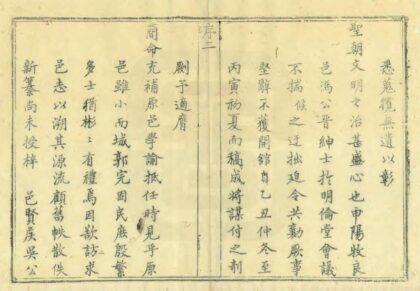 悉蒐羅無遺以彰
聖朝文明之治甚盛心也申陽牧良
邑馮公晉紳士於明倫堂會議
不揣候之迂拙延令共勷厥事
堅辭不獲開館自乙丑仲冬至
丙寅初夏而稿成將謀付之剞
序二
劂予適膺
簡命充補原邑學諭抵任時見平原
邑雖小而城郭完固民庶殷繁
多士猶彬〻有禮焉因歎訪求
邑志以溯其源流顧舊帙散佚
新纂尚未授梓 邑賢侯吳公